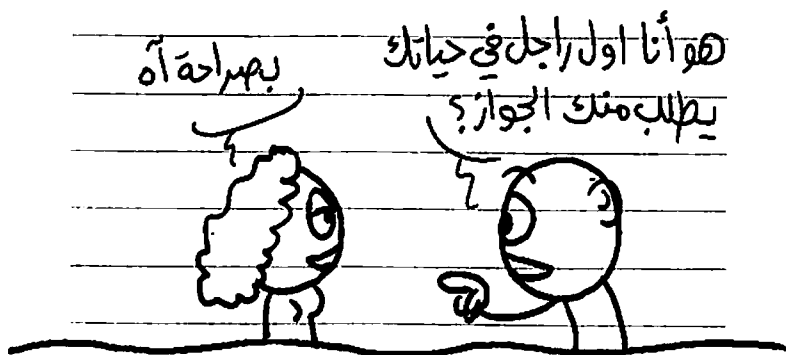 هو أنا اول راجل في حياتك
يطلب منك الجواز؟
بصراحة آه